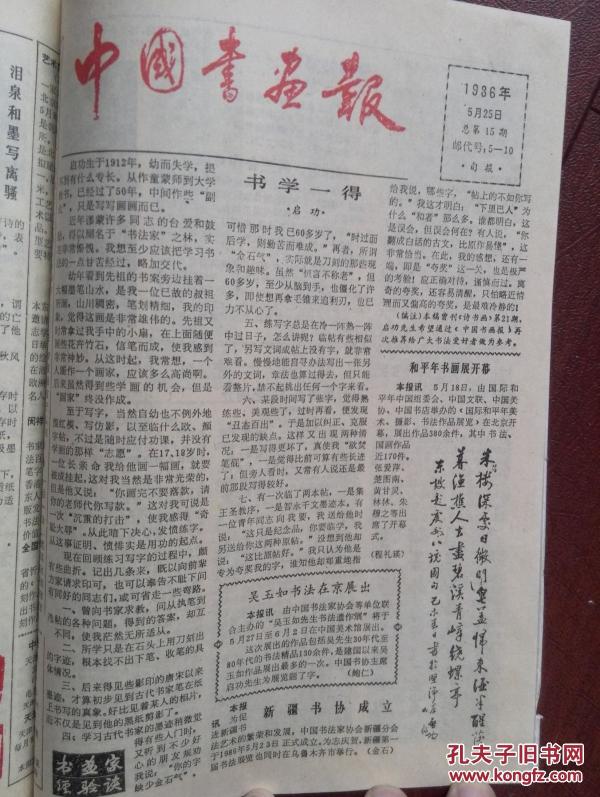 中國書畫報
1986年
5月25日
总第15期
邮代号:5—10
·旬报·
泪泉和墨写离骚
书学一得
·启功·
启功生于1912年，幼而失学，
到有什么专长。从作童蒙师到大学
教书，已经过了50年，中间作些“副
业”，只是写写画画而已。
近年谬蒙许多同志的台爱和鼓
励，得以厕名于“书法家”之林，实
在非常惭愧。我想至少应该把学习书
法的一点甘苦经过，略加交代。
幼年看到先祖的书案旁边挂着一
大幅墨笔山水，是我一位已故的叔祖
所画，山川稠密，笔划精细，我的印
象，觉得这画是非常雄伟的。先祖又
时常拿过我手中的小扇，在上面随便
画些花卉竹石，信笔而成，使我感到
非常神妙。从这时起，我常想，一个
人能作一个画家，应该多么高尚啊。
后来虽然得到些学画的机会，但是
“画家”终没作成。
至于写字，当然自幼也不例外地
描红模、写仿影，以至临什么欧、颜
字帖，不过是随时应付功课，并没有
学画的那样“志愿”。在17、18岁时，
一位长亲命我给他画一幅画，就要
裱成挂起，这对我当然是非常光荣的，
但是他又说：“你画完不要落款，请
你的老师代你写款。”这对我可说是
一次“沉重的打击”，使我感得“奇
耻大辱”。从此暗下决心，发愤练字。
从这事证明，愤悱实是用功的起点。
现在回顾练习写字的过程中，颇
有些曲折。记出几条来，既以向前辈
方家请求印可，也可以奉告不耻下问
有同好的同志们，或可省走一些弯路。
一、曾向书家求教，问从执笔到
选帖的各种问题，得到的答案，却互
不同，使我茫然无所适从。
二、所学只是在石头上用刀刻出
的字迹，根本找不出下笔、收笔的具
体情况。
三、后来得见些影印的唐宋以来
墨迹，才算初步见到古代书家笔在纸
上书写的真象。好比见着某人的相片，
而不仅是见到他的黑纸剪影了。
四、学习古代书家的墨迹稍微觉
得有些入门时，
又听到不少好
心的朋友规劝
我说：“你的字
缺少金石气”。
书画家
经验谈
可惜那时我已60多岁了，“时过而
后学，则勤苦而难成。”再者，所谓
“金石气”，实际就是刀刻的那些现
象和趣味。虽然“恒言不称老”，但
60多岁，至少从腕到手，也僵化了许
多，即使想再拿毛锥来追利刃，也已
力不从心了。
五、练写字总是在冷一阵热一阵
中过日子，怎么讲呢？临帖有些相似
了，另写文词或帖上没有字，就非常
难看。慢慢地能自寻办法写出一张另
外的文词，非法也算过得去，但只能
看整片，禁不起挑出任何一个字来看。
六、某段时间写了些字，觉得熟
练些、美观些了，过时再看，便发现
“丑态百出”。于是加以纠正、克服
已发现的缺点。这样又出现两种情
况：一是写得更坏了，真使我“欲焚
笔砚”，一是觉得比前可算有些长进
了；但旁人看时，又常有人说还是最
前那段写得较好。
七、有一次临了两本帖，一是集
王圣教序，一是智永千文墨迹本。有
一位青年同志向我要，我送给他时
说：“这只是纪念品，你要临学，我
另送给你这两种原帖。”没想到他却
说：“这比原帖好。”我只认为他是
专为夸奖我的字，谁知他却郑重地指
给我说，哪些字，“帖上的不如你写
的。”我这才明白：“下里巴人”为
什么“和者”那么多。谁都明白，这
是误会，但误会何在？有人说，“你
翻成白话的古文，比原作易懂”，这
非常恰当。在此，我的感想，还有一
端，即是“夸奖”这一关，也是极严
的考验！应正确对待，谨慎而过。离
奇的夸奖，还容易清醒，只怕略近情
理而又偏高的夸奖，是最难冷静的！
（编注）本稿曾刊《诗书画》第21期，
启功先生希望通过《中国书画报》再
次推荐给广大书法爱好者做为参考。
和平年书画展开幕
本报讯 5月18日，由国际和
平年中国组委会、中国文联、中国美
协、中国书店举办的《国际和平年美
术、摄影、书法作品展览》在北京开
幕，展出作品380余件，其中书法、
国画作品
近170件。
张爱萍、
楚图南、
黄甘灵、
林林、朱
穆之等出
席了开幕
式。
（程礼瑛）
吴玉如书法在京展出
本报讯 由中国书法家协会等单位联
合主办的“吴玉如先生书法遗作展”将于
5月27日至6月2日在中国美术馆展出。
这次展出的作品包括吴先生30年代至
80年代的书法精品130余件，是建国以来吴
玉如作品展出最多的一次。中国书协主席
启功先生为展览题了字。
（鲍仁）
新疆书协成立
本报讯
为促
进新疆书
法艺术的繁荣和发展，中国书法家协会新疆分会
于1986年5月23日正式成立。为志庆贺，新疆第一
届书法展览也同时在乌鲁木齐市举行。（金石）
孔夫子旧书网
KONGFZ.COM